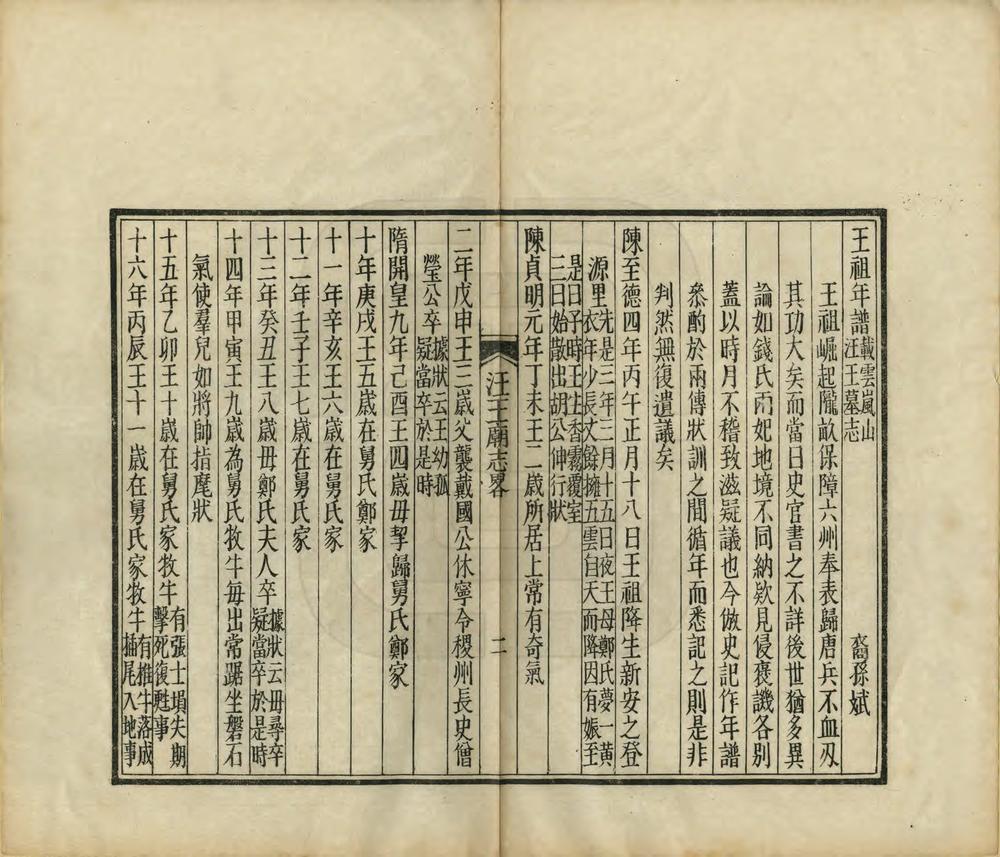 王祖年譜 載雲嵐山汪王墓志 裔孫斌
王祖崛起隴畝保障六州奉表歸唐兵不血刃
其功大矣而當日史官書之不詳後世猶多異
論如錢氏雨妃地境不同納欵見侵褒譏各別
蓋以時月不稽致滋疑議也今倣史記作年譜
叅酌於兩傳狀訓之間循年而悉記之則是非
判然無復遺議矣
陳至德四年丙午正月十八日王祖降生新安之登
源里 先是三年三月十五日夜王母鄭氏夢一黃衣年少長丈餘擁五雲自天而降因有娠至
是日子時王生香霧覆室三日始散出胡公伸行狀
陳貞明元年丁未王二歲所居上常有奇氣
汪王廟志畧 二
二年戊申王三歲父襲戴國公休寧令稷州長史僧
瑩公卒 據狀云王幼孤疑當卒於是時
隋開皇九年己酉王四歲母挈歸舅氏鄭家
十年庚戌王五歲在舅氏鄭家
十一年辛亥王六歲在舅氏家
十二年壬子王七歲在舅氏家
十三年癸丑王八歲母鄭氏夫人卒 據狀云母尋卒疑當卒於是時
十四年甲寅王九歲為舅氏牧牛每出常踞坐磐石
氣使羣兒如將帥指麾狀
十五年乙卯王十歲在舅氏家牧牛 有張士塤失期擊死復甦事
十六年丙辰王十一歲在舅氏家牧牛 有椎牛落成插尾入地事